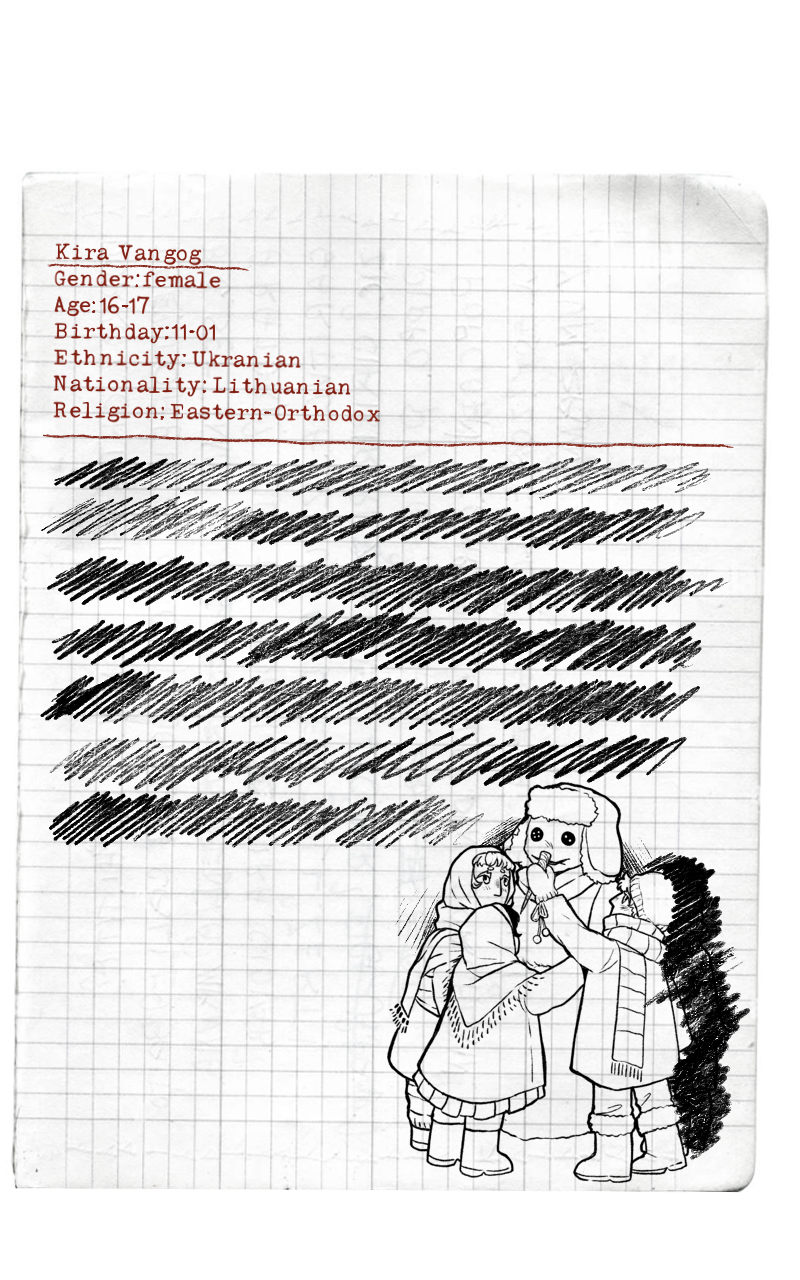 Kira Vangog
Gender:female
Age:16-17
Birthday:11-01
Ethnicity: Ukranian
Nationality: Lithuanian
Religion: Eastern-Orthodox